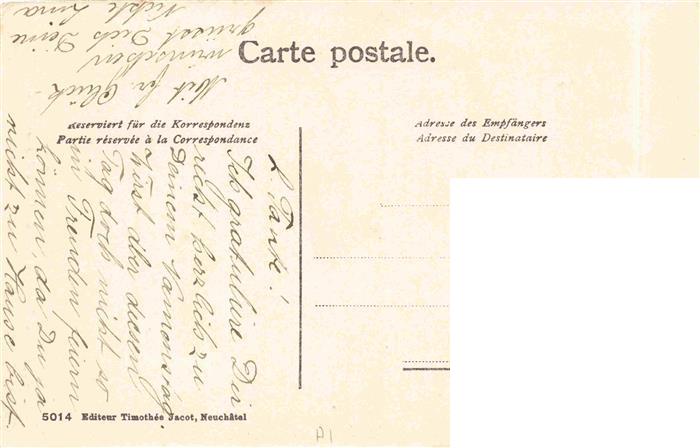 Carte postale.
Reserviert für die Korrespondenz
Partie réservée à la Correspondance
Adresse des Empfängers
Adresse du Destinataire
L. Tante!
Ich gratuliere Dir
recht herzlich zu
Deinem Namenstag
wirst aber diesen
Tag doch nicht so
in Freuden feiern
können, da Du ja
nicht zu Hause bist.
Mit fr. Glück-
wünschen
grüsst Dich Deine
Nichte
5014 Editeur Timothée Jacot, Neuchâtel
P1